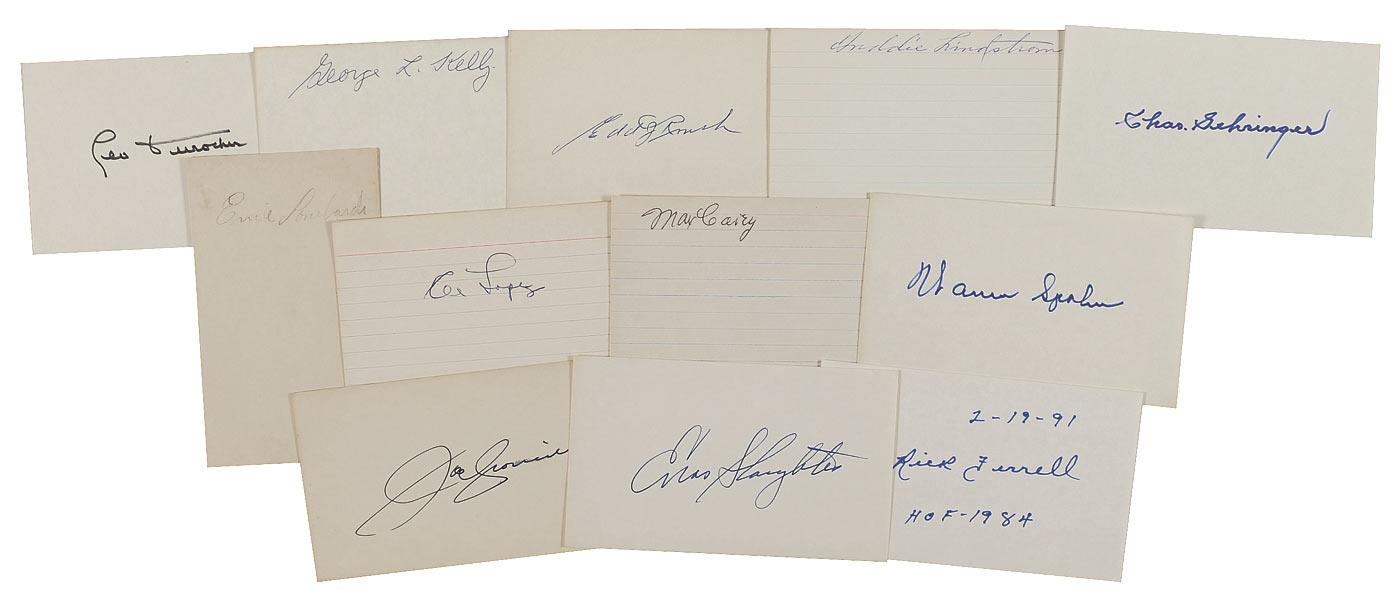 Leo Durocher
George L. Kelly
Edd J Roush
Freddie Lindstrom
Chas. Gehringer
Ernie Lombardi
Al Lopez
Max Carey
Warren Spahn
Joe Cronin
Enos Slaughter
2-19-91
Rick Ferrell
HOF-1984